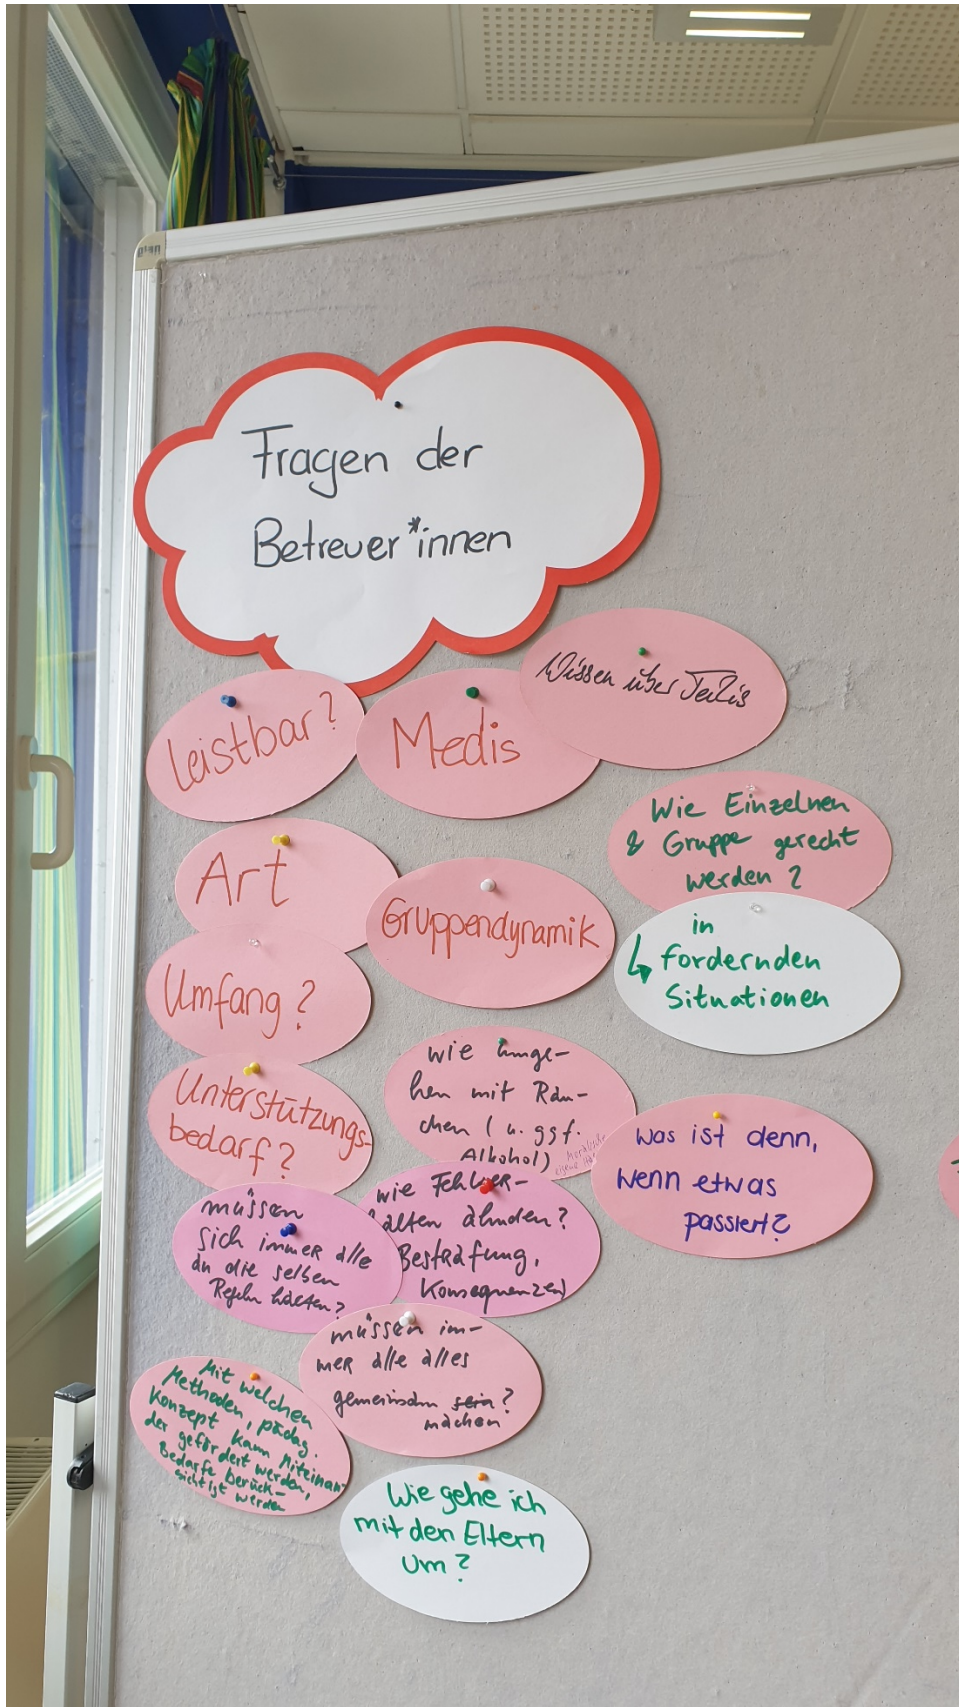 Fragen der
Betreuer*innen
Leistbar?
Medis
Wissen über Teilis
Art
Gruppendynamik
Wie Einzelnen
& Gruppe gerecht
werden?
↳ in
fordernden
Situationen
Umfang?
Unterstützungs-
bedarf?
wie umge-
hen mit Rau-
chen (u. ggf.
Alkohol)
Was ist denn,
wenn etwas
passiert?
müssen
sich immer alle
an die selben
Regeln halten?
wie Fehlver-
halten ahnden?
Bestrafung,
Konsequenzen
müssen im-
mer alle alles
gemeinsam sein?
machen
Mit welchen
Methoden, pädag.
Konzept kann Miteinan-
der gefördert werden,
Bedarfe berück-
sichtigt werden
Wie gehe ich
mit den Eltern
um?